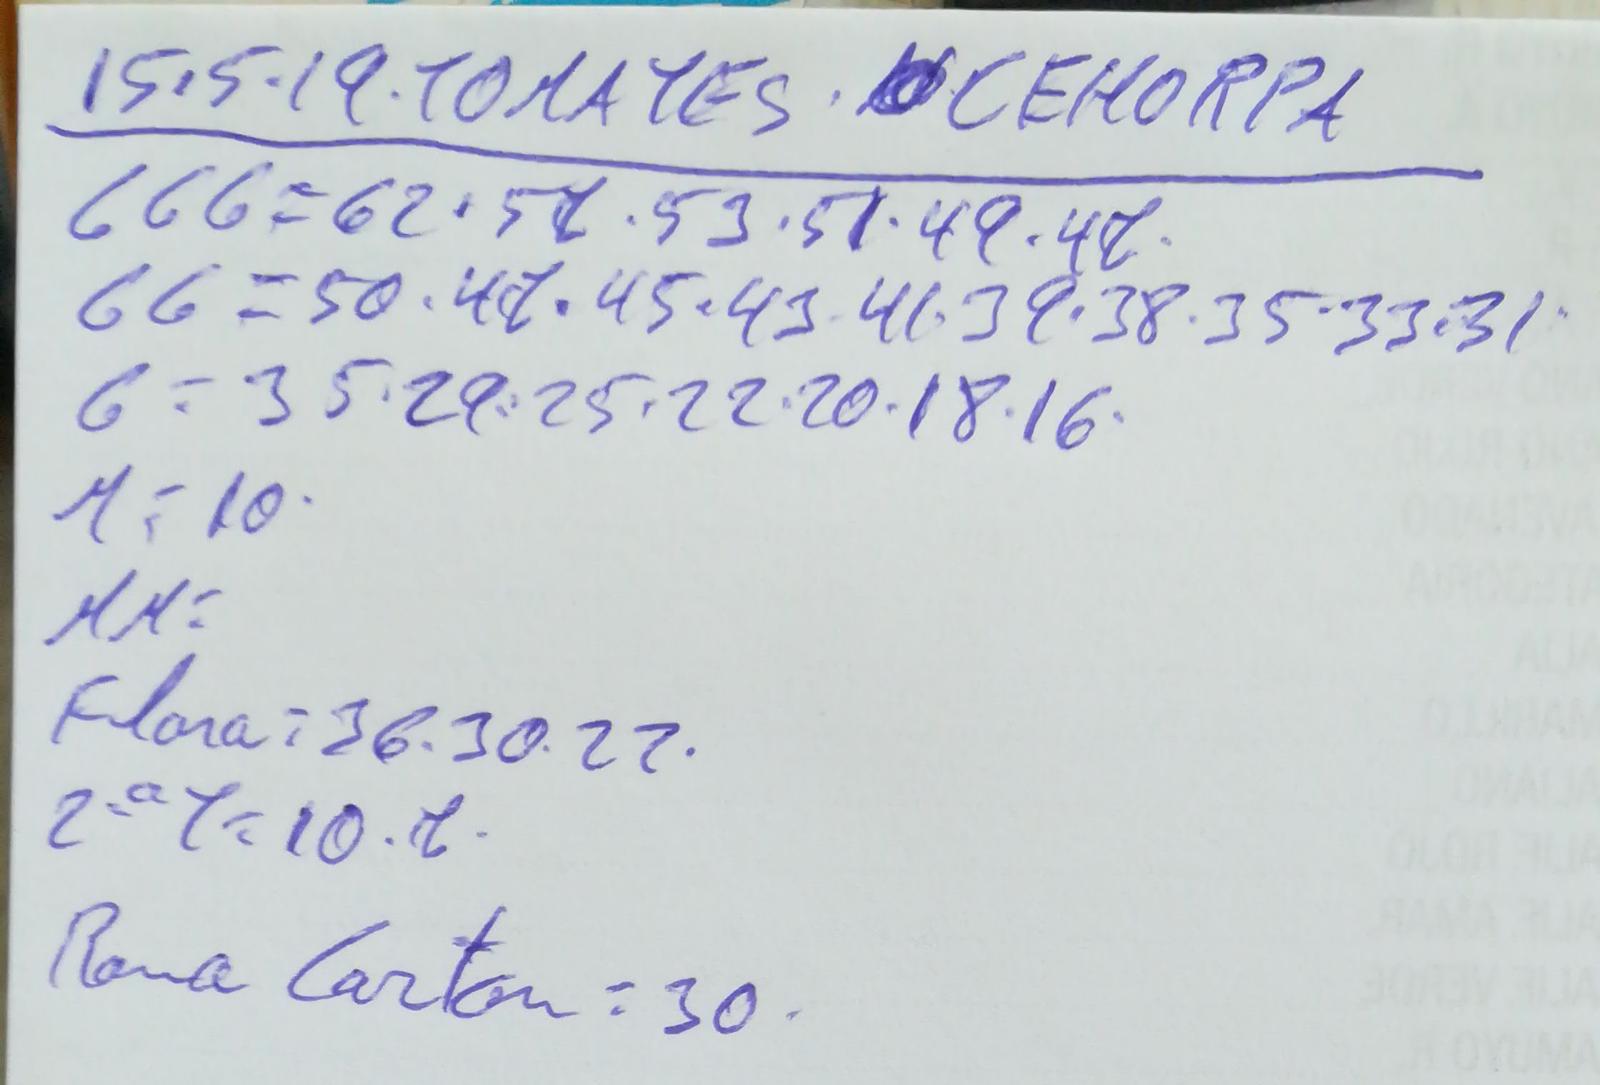 15.5.19.TOMATES. CEHORPA
GGG=62.57.53.51.49.47.
GG=50.47.45.43.41.39.38.35.33.31.
G=35.29.25.22.20.18.16.
M=10.
MM=
Flora=36.30.22.
2-ª T=10.7.
Rama Carton=30.